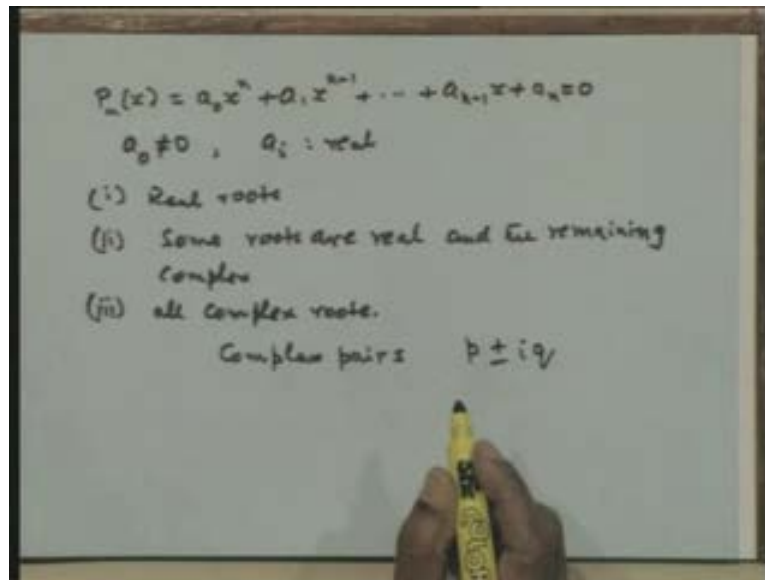 Pₙ(x) = a₀xⁿ + a₁xⁿ⁻¹ + ··· + aₙ₋₁x + aₙ = 0
a₀ ≠ 0 , aᵢ : real
(i) Real roots
(ii) Some roots are real and the remaining
complex
(iii) all complex roots.
Complex pairs p ± iq